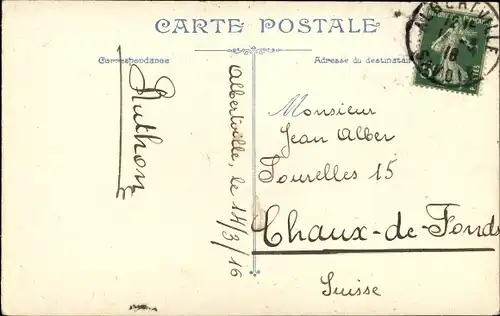 CARTE POSTALE
Correspondance
Adresse du destinataire
Ruthon
Albertville, le 14/3/16
Monsieur
Jean Alber
Tourelles 15
Chaux-de-Fonds
Suisse
ALBERTVILLE
16
SAVOIE